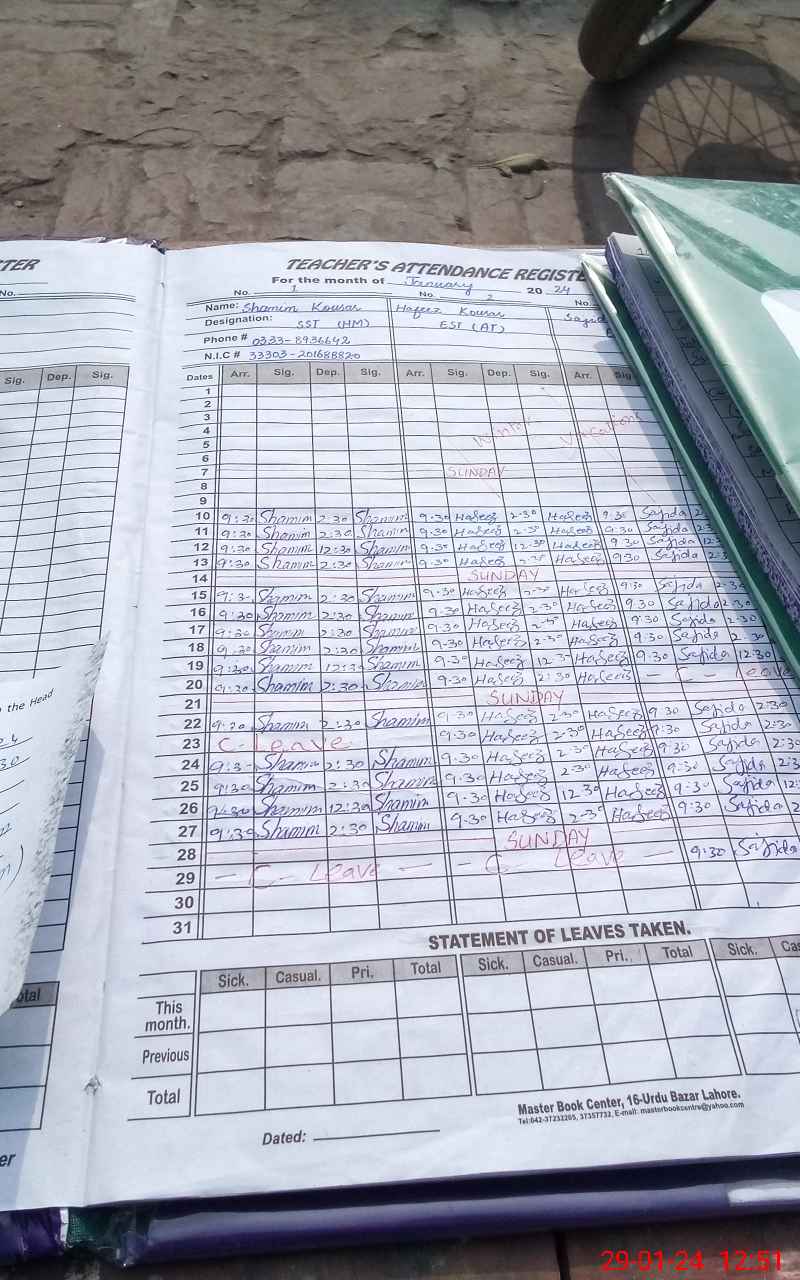 TER
No.
Sig. Dep. Sig.
TEACHER'S ATTENDANCE REGISTE
For the month of January 20 24
No. 1 No. 2 No.
Name: Shamim Kousar Hafeez Kousar Sajid
Designation: SST (HM) EST (AT)
Phone # 0333-8936642
N.I.C # 33303-201688820
Dates Arr. Sig. Dep. Sig. Arr. Sig. Dep. Sig. Arr. Sig
1
2
3
4 Winter Vacations
5
6
7 SUNDAY
8
9
10 9:30 Shamim 2:30 Shamim 9.30 Hafeez 2.30 Hafeez 9.30 Sajida
11 9:30 Shamim 2:30 Shamim 9.30 Hafeez 2-30 Hafeez 9.30 Sajida 2.3
12 9:30 Shamim 12:30 Shamim 9.30 Hafeez 12.30 Hafeez 9.30 Sajida 12:
13 9:30 Shamim 2:30 Shamim 9.30 Hafeez 2-30 Hafeez 9.30 Sajida 2:3
14 SUNDAY
15 9:3- Shamim 2:30 Shamim 9.30 Hafeez 2-30 Hafeez 9.30 Sajida 2.30
16 9:30 Shamim 2:30 Shamim 9.30 Hafeez 2-30 Hafeez 9.30 Sajida 2.30
17 9:30 Shamim 2:30 Shamim 9.30 Hafeez 2-30 Hafeez 9.30 Sajida 2.30
18 9:30 Shamim 2:30 Shamim 9.30 Hafeez 2-30 Hafeez 9.30 Sajida 2.30
19 9:30 Shamim 12:30 Shamim 9.30 Hafeez 12.30 Hafeez 9.30 Sajida 12.30
20 9:30 Shamim 2:30 Shamim 9.30 Hafeez 2:30 Hafeez - C - Leave
21 SUNDAY
22 9:30 Shamim 2:30 Shamim 9.30 Hafeez 2-30 Hafeez 9.30 Sajida 2:30
23 C-Leave 9.30 Hafeez 2-30 Hafeez 9.30 Sajida 2:30
24 9:3- Shamim 2:30 Shamim 9.30 Hafeez 2-30 Hafeez 9.30 Sajida 2:30
25 9:30 Shamim 2:30 Shamim 9.30 Hafeez 2-30 Hafeez 9.30 Sajida 2:3
26 9:30 Shamim 12:30 Shamim 9.30 Hafeez 12.30 Hafeez 9:30 Sajida 12:
27 9:30 Shamim 2:30 Shamim 9.30 Hafeez 2-30 Hafeez 9:30 Sajida 2
28 SUNDAY
29 - C - Leave - - C - Leave - 9:30 Sajida
30
31
STATEMENT OF LEAVES TAKEN.
Sick. Casual. Pri. Total Sick. Casual. Pri. Total Sick. Cas
This month.
Previous
Total
Dated:
Master Book Center, 16-Urdu Bazar Lahore.
Tel:042-37232205, 37357732, E-mail: masterbookcentre@yahoo.com
the Head
otal
er
29-01-24 12:51